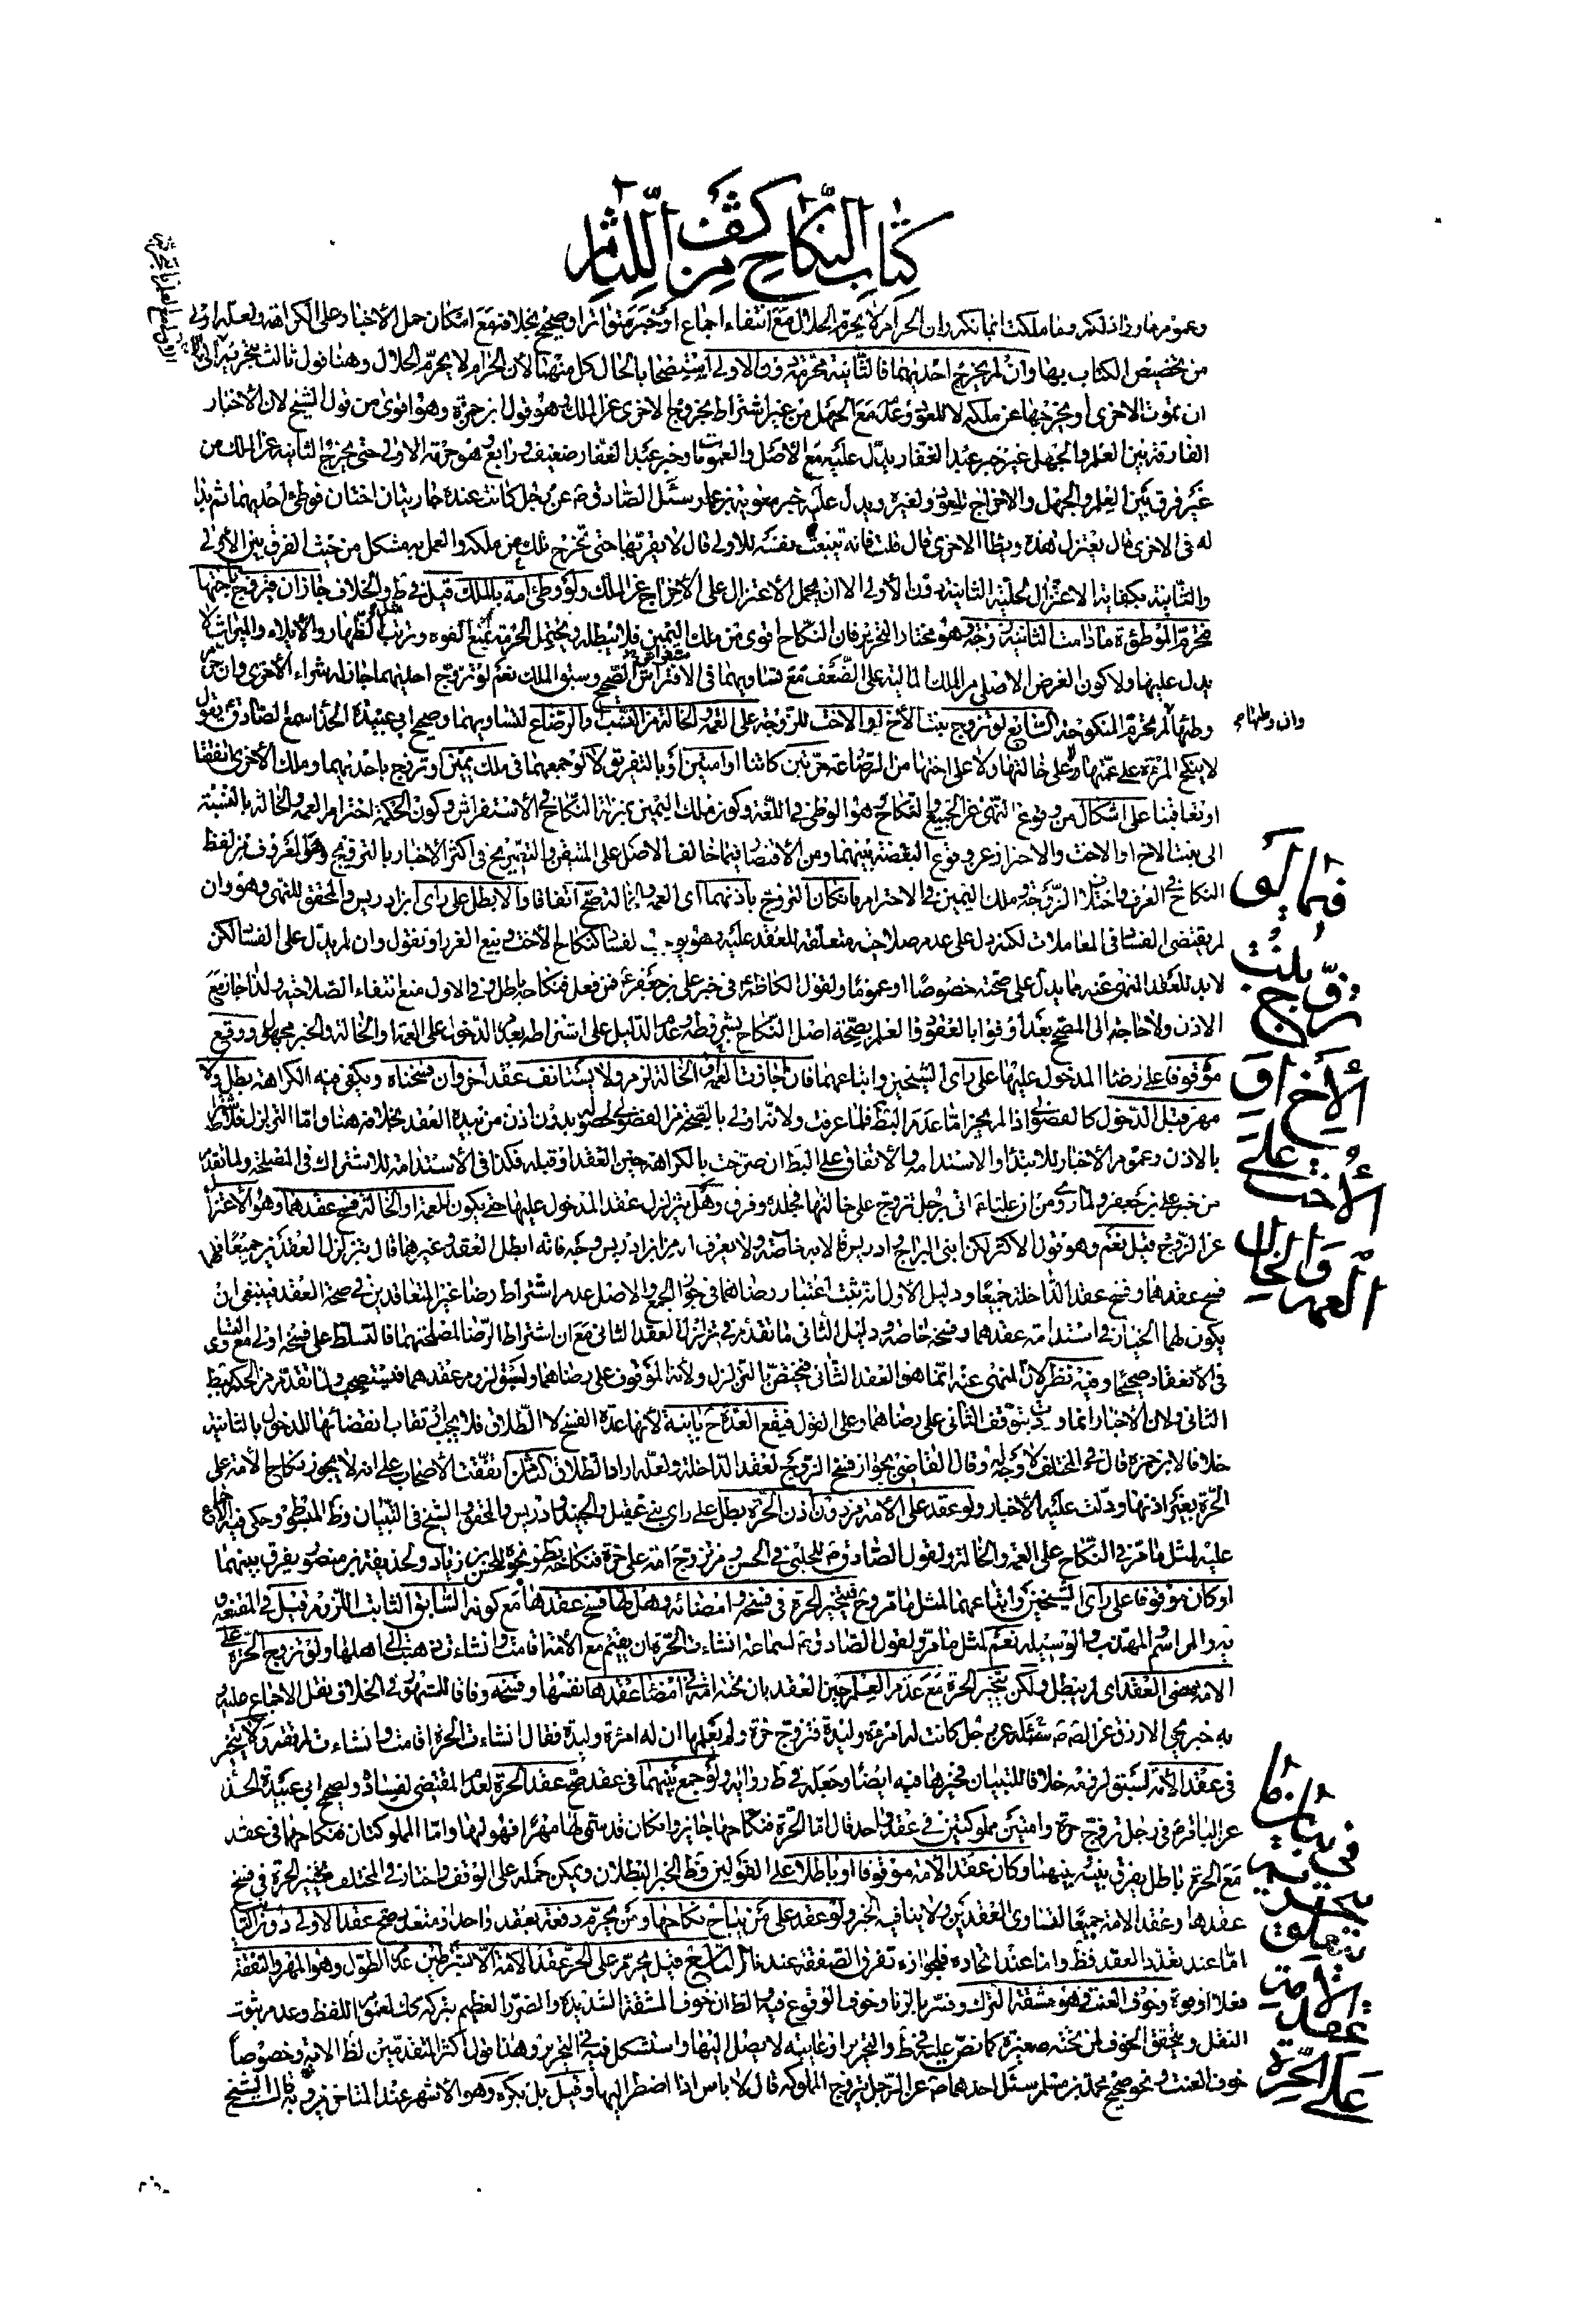 كتاب النكاح من كشف اللثام
وعموم ما وراء ذلكم وما ملكت ايمانكم وان الحرام لا يحرم الحلال مع انتفاء اجماع او خبر متواتر او صحيح بخلافه مع امكان حمل الاخبار على الكراهة ولعله اولى
من تخصيص الكتاب بها وان لم يخرج احديهما فالثانية محرمة دون الاولى استصحابا لحال كل منهما لان الحرام لا يحرم الحلال وهنا قول ثالث بتحريم الاولى الى
ان تموت الاخرى او يخرجها عن ملكه لا للعود وعدمه مع الجهل من غير اشتراط بخروج الاخرى عن الملك وهو قول ابن حمزة وهو اقوى من قول الشيخ لان الاخبار
الفارقة بين العلم والجهل غير خبر عبد الغفار يدل عليه مع الاصل والعمومات وخبر عبد الغفار ضعيف ورابع هو حرمة الاولى حتى يخرج الثانية عن الملك من
غير فرق بين العلم والجهل والاخراج للعود ولغيره ويدل عليه خبر معوية بن عمار سئل الصادق ع عن رجل كانت عنده جاريتان اختان فوطئ احديهما ثم بدا
له في الاخرى قال يعتزل هذه ويطا الاخرى قال قلت فانه تنبعث نفسه للاولى قال لا يقربها حتى تخرج تلك من ملكه والعمل به مشكل من حيث الفرق بين الاولى
والثانية بكفاية الاعتزال لحلية الثانية دون الاولى الا ان يحمل الاعتزال على الاخراج عن الملك ولو وطئ امة بالملك قيل في ط والخلاف جاز ان يتزوج باختها
فتحرم الموطوءة ما دامت الثانية زوجة وهو مختار التحرير فان النكاح اقوى من ملك اليمين فلا يبطله ويحتمل الحرمة لمنع القوة وترتب الظهار والايلاء والميراث لا
يدل عليها ولا كون الغرض الاصلي من الملك المالية على الضعف مع تساويهما في الافتراش الصحيح وسبق الملك نعم لو تزوج احديهما جاز له شراء الاخرى وان حرم
وطئها لم تحرم المنكوحة السابع لو تزوج بنت الاخ او الاخت للزوجة على العمة والخالة من النسب والرضاع لتساويهما وصحيح ابي عبيدة الحذا سمع الصادق ع يقول
وان وطئها
لا ينكح المرئة على عمتها ولا على خالتها ولا على اختها من الرضاعة حرتين كانتا او امتين او بالتفريق لا لو جمعهما في ملك يمين او تزوج باحديهما وملك الاخرى اتفقا
او تعاقبتا على اشكال من وقوع النهي عن الجميع والنكاح هو الوطئ في اللغة وكون ملك اليمين بمنزلة النكاح في الاستفراش وكون الحكمة احترام العمة والخالة بالنسبة
الى بنت الاخ او الاخت والاحتراز عن وقوع البغضة بينهما ومن الاقتصار فيما خالف الاصل على المتيقن والتصريح في اكثر الاخبار بالتزويج وهو المعروف من لفظ
فيما لو تزوج بنت الاخ او الاخت على العمة والخالة
النكاح في العرف واختلاف الزوجة وملك اليمين في الاحترام فان كان التزويج باذنهما اي العمة والخالة صح اتفاقا والا بطل على راى ابن ادريس والمحقق للنهي وهو وان
لم يقتض الفساد في المعاملات لكنه دل على عدم صلاحية متعلقه للعقد عليه وهو يوجب الفساد كنكاح الاخت وبيع الغرر او نقول وان لم يدل على الفساد لكن
لا بد للعقد المنهي عنه مما يدل على صحته خصوصا او عموما ولقول الكاظم ع في خبر علي بن جعفر ع فمن فعل فنكاحه باطل وفي الاول منع انتفاء الصلاحية ولذا جاز مع
الاذن ولا حاجة الى المصحح بعد اوفوا بالعقود والعلم بصحة اصل النكاح بشروطه وعدم الدليل على اشتراطه بعدم الدخول على العمة والخالة والخبر مجهول ووقع
موقوفا على رضا المدخول عليها على راى الشيخين واتباعهما فان اجازت العمة او الخالة لزم ولا يستانف عقد اخر وان فسختاه ويكفي فيه الكراهة بطل ولا
مهر قبل الدخول كالفضولي اذا لم يجز اما عدم البطلان فلما عرفت ولانه اولى بالصحة من الفضولي لحصوله بدون اذن من بيده العقد بخلافه هنا واما التزلزل فلاشتراط
بالاذن وعموم الاخبار للابتداء والاستدامة والاتفاق على البطلان صرحت بالكراهة حين العقد او قبله فكذا في الاستدامة للاشتراك في المصلحة ولما تقدم
من خبر علي بن جعفر ولما روى من ان عليا ع اتى برجل تزوج على خالتها فجلده وفرق وهل يتزلزل عقد المدخول عليها حتى يكون للعمة او الخالة فسخ عقدهما وهو الاعتزال
عن الزوج قيل نعم وهو قول الاكثر لكن ابني البراج وادريس قالا به خاصة ولا يعرف من ابن ادريس وجه فانه ابطل العقد وغيرهما قال بتزلزل العقدين جميعا فلها
فسخ عقدهما وفسخ عقد الداخلة جميعا ودليل الاول انه ثبت اعتبار رضاهما في جواز الجمع والاصل عدم اشتراط رضا غير المتعاقدين في صحة العقد فينبغي ان
يكون لهما الخيار في استدامة عقدهما وفسخه خاصة ودليل الثاني ما تقدم في تزلزل العقد الثاني مع ان اشتراط الرضا لمصلحتهما فالتسلط على فسخه اولى مع التساوي
في الانعقاد صحيحا وفيه نظر لان المنهي عنه انما هو العقد الثاني فيختص بالتزلزل ولانه الموقوف على رضاهما ولسبق لزوم عقدهما فيستصحب ولما تقدم من الحكم ببطلان
الثاني ولان الاخبار انما وردت بتوقف الثاني على رضاهما وعلى القول فيقع العدة ح باينة لانها عدة الفسخ لا الطلاق فلا يجب ارتقاب انقضائها للدخول بالثانية
خلافا لابن حمزة قال في المختلف لا وجه له وقال القاضي بجواز فسخ الزوج لعقد الداخلة ولعله اراد الطلاق الثامن اتفقت الاصحاب على انه لا يجوز نكاح الامة على
الحرة بغير اذنها ودلت عليه الاخبار ولو عقد على الامة من دون اذن الحرة بطل على راى بني عقيل والجنيد وادريس والمحقق والشيخ في التبيان وط المبسوط وحكى فيه الاجماع
عليه لمثل ما مر في النكاح على العمة والخالة ولقول الصادق ع للحلبي في الحسن من تزوج امة على حرة فنكاحه باطل ونحوه للحسن بن زياد ولحذيفة بن منصور يفرق بينهما
او كان موقوفا على راى الشيخين واتباعهما لمثل ما مر وح فيتخير الحرة في فسخه وامضائه وهل لها فسخ عقدها مع كونه السابق الثابت اللزوم قيل في المقنعة و
يه والمراسم والمهذب والوسيلة نعم لمثل ما مر ولقول الصادق ع لسماعة ان شاءت الحرة ان يقيم مع الامة اقامت وان شاءت ذهبت الى اهلها ولو تزوج الحرة على
الامة مضى العقد اي لم يبطل ولكن يتخير الحرة مع عدم العلم حين العقد بان تحته امة في امضاء عقدها نفسها وفسخه وفاقا للمشهور وفي الخلاف نقل الاجماع عليه و
به خبر يحيى الازرق عن الصادق ع سئله عن رجل كانت له امرءة وليدة فتزوج حرة ولم يعلمها ان له امرءة وليدة فقال ان شاءت الحرة اقامت وان شاءت لم تقم ولا يتخير
في عقد الامة لسبق لزومه خلافا للتبيان فخيرها فيه ايضا وجعله في ط رواية ولو جمع بينهما في عقد صح عقد الحرة لعدم المقتضي لفساده ولصحيح ابي عبيدة الحذاء
في بيان ما يتعلق بعقد الامة على الحرة
عن الباقر ع في رجل تزوج حرة وامتين مملوكتين في عقد واحد قال اما الحرة فنكاحها جايز وان كان قد سمى لها مهرا فهو لها واما المملوكتان فنكاحهما في عقد
مع الحرة باطل يفرق بينه وبينهما وكان عقد الامة موقوفا او باطلا على القولين وظ الخبر البطلان ويمكن حمله على الوقف واختار في المختلف تخيير الحرة في فسخ
عقدها وعقد الامة جميعا لتساوي العقدين ولا ينافيه الخبر ولو عقد على من يباح نكاحها ومن يحرم دفعة بعقد واحد او متعدد صح عقد الاولى دون الثانية
اما عند تعدد العقد فظ واما عند اتحاده فلجواز تفرق الصفقة عندنا التاسع قيل يحرم على الحر عقد الامة الا بشرطين عدم الطول وهو المهر والنفقة
فعلا او قوة وخوف العنت وهو مشقة الترك وفسر بالزنا وخوف الوقوع فيه والظ ان خوف المشقة الشديدة والضرر العظيم بتركه كك لعموم اللفظ وعدم ثبوت
النقل ويتحقق الخوف لمن تحته صغيرة كما نص عليه في ط والتحرير او غايبة لا يصل اليها واستشكل فيه في التحرير وهذا قول اكثر المتقدمين لظ الاية وخصوصا
خوف العنت ونحو صحيح محمد بن مسلم سئل احدهما ع عن الرجل يتزوج المملوكة قال لا باس اذا اضطر اليها وقيل بل يكره وهو الاشهر عند المتاخرين وبه قال الشيخ